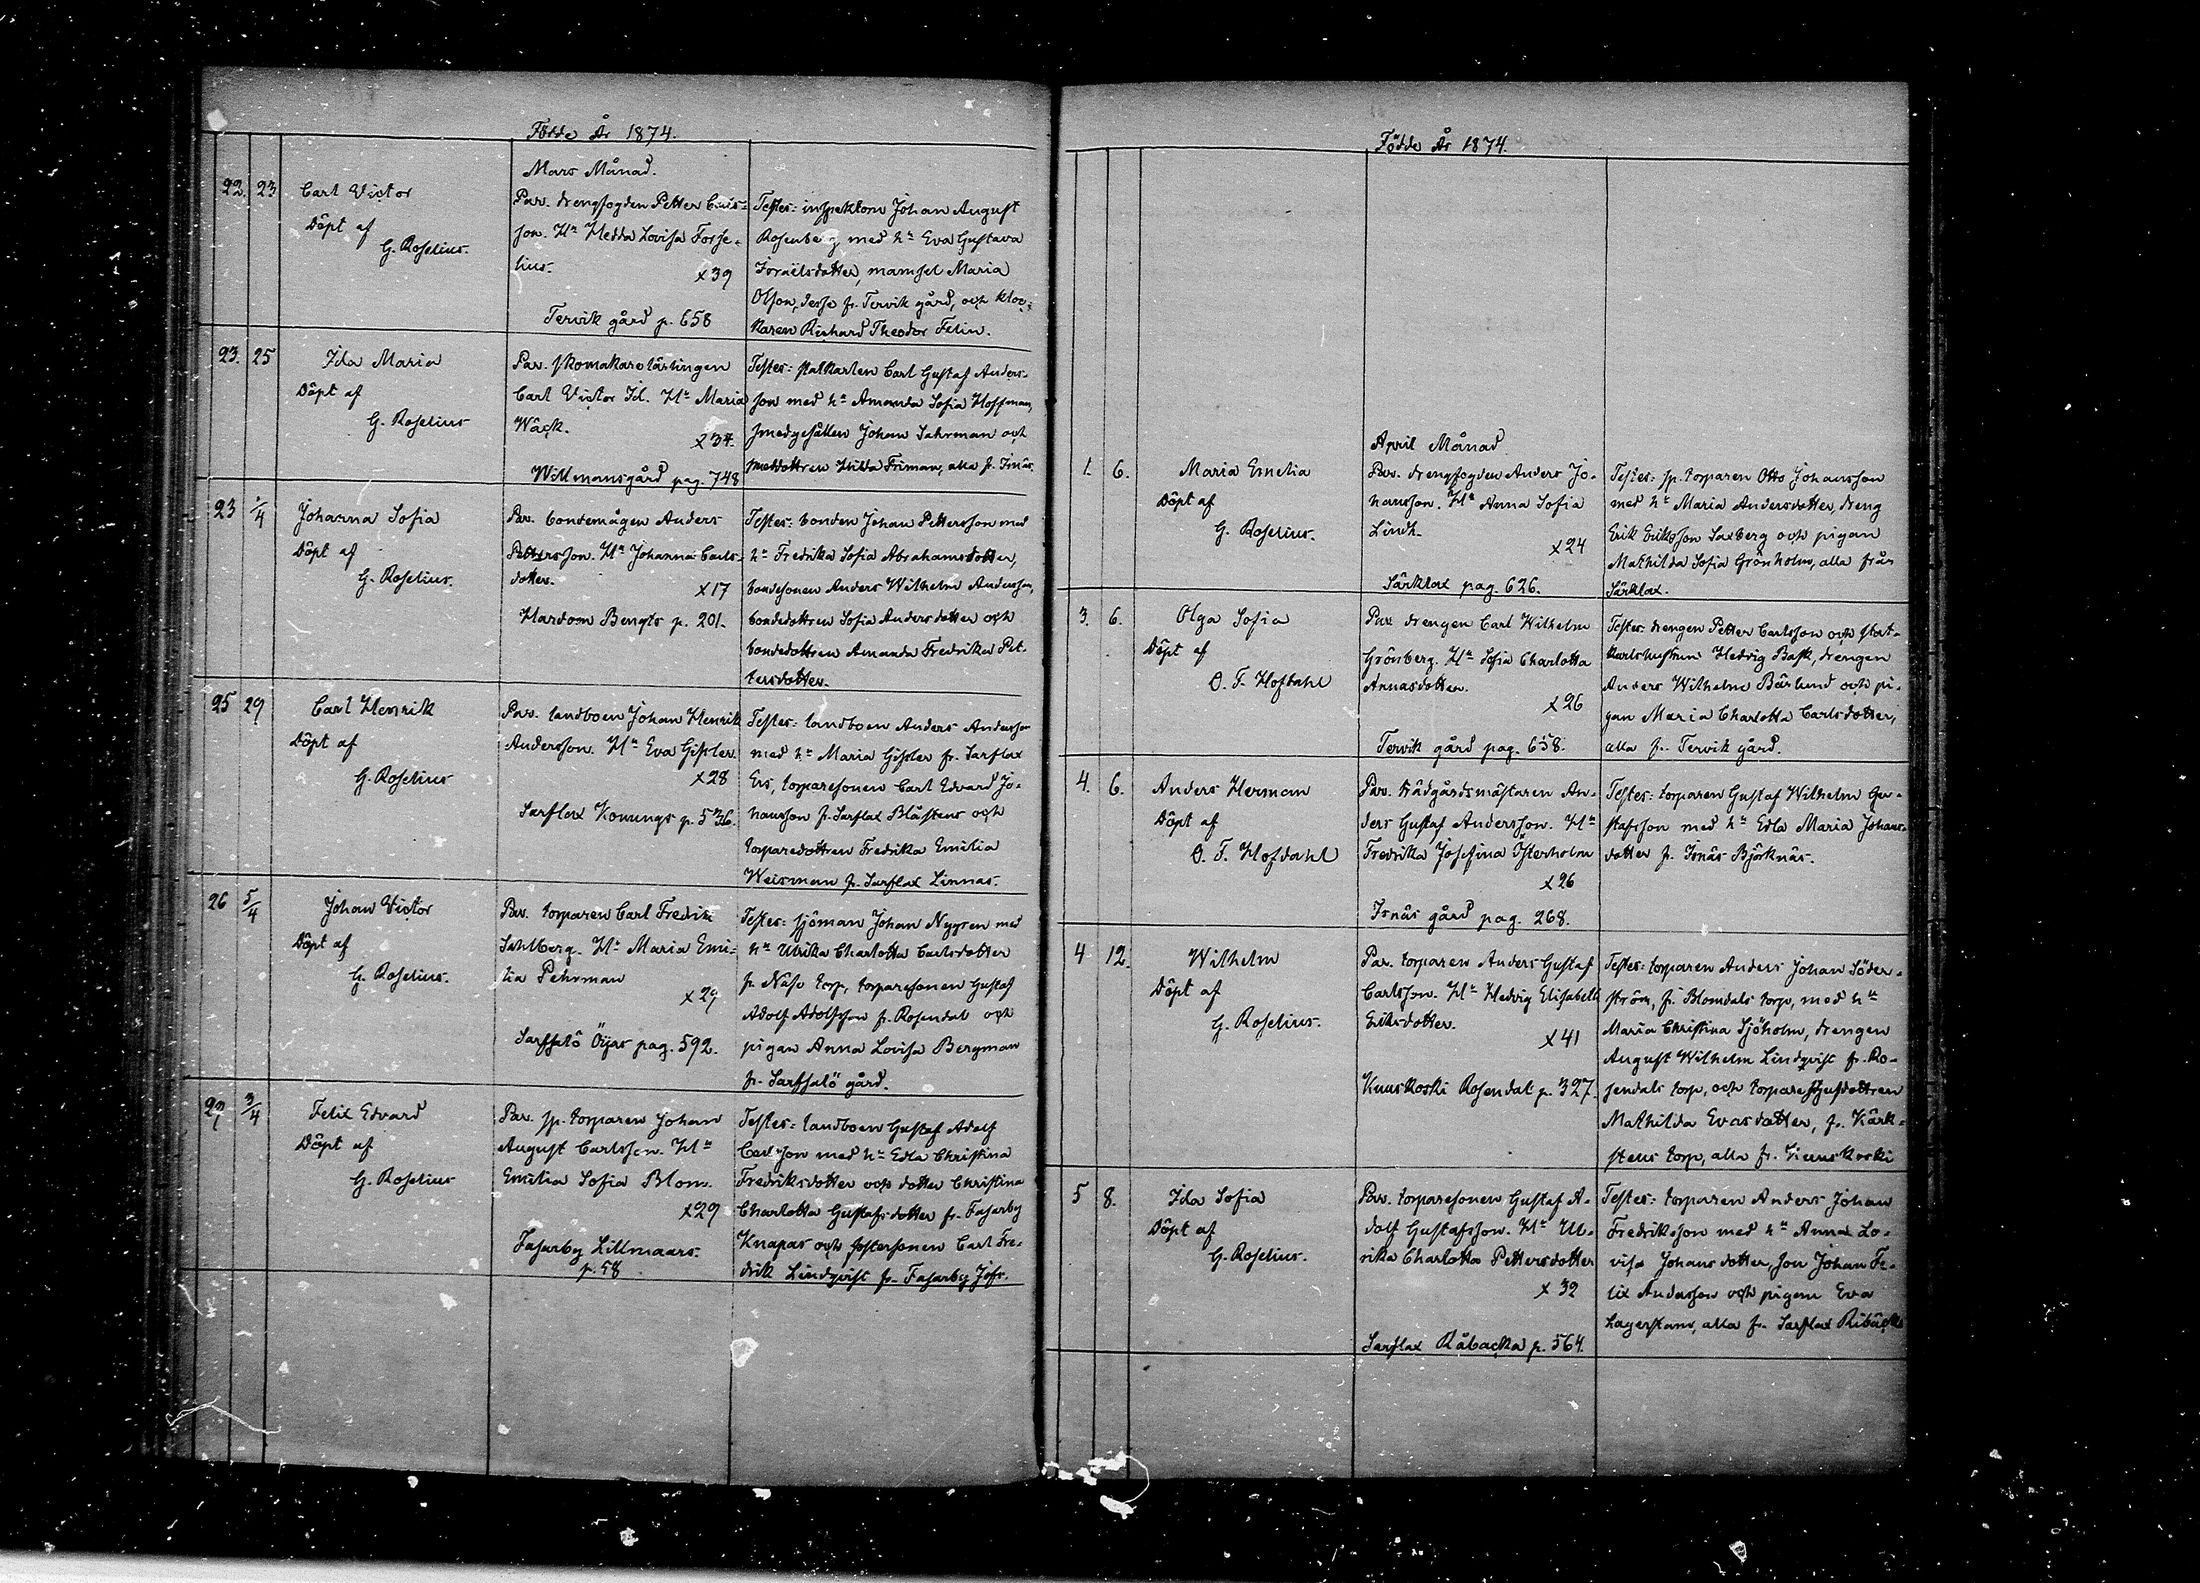 Födde År 1874.
Mars Månad.
22. 23 Carl Victor
Döpt af
G. Roselius.
Par. drengfogden Petter Carls-
son. Hu Hedda Lovisa Forse-
lius.
x39
Tervik gård p. 658
Testes: inspektorn Johan August
Rosenberg med hu Eva Gustava
Israelsdotter, mamsel Maria
Olson, desse fr. Tervik gård, och kloc-
karen Richard Theodor Felin.
23. 25 Ida Maria
Döpt af
G. Roselius
Par. skomakarelärlingen
Carl Victor Id. Hu Maria
Wäck.
x34.
Willmansgård pag. 748
Testes: statkarlen Carl Gustaf Anders-
son med hu Amanda Sofia Hoffman,
smedgesällen Johan Sahrman och
Hilda Friman, alla fr. Isnäs.
23 1/4 Johanna Sofia
Döpt af
G. Roselius.
Par. bondemågen Anders
Pettersson. Hu Johanna Carls-
dotter.
x17
Hardom Bengts p. 201.
Testes: bonden Johan Pettersson med
hu Fredrika Sofia Abrahamsdotter,
bondesonen Anders Wilhelm Andersson,
bondedottren Sofia Andersdotter och
bondedottren Amanda Fredrika Pet-
tersdotter.
25 29 Carl Henrik
Döpt af
G. Roselius
Par. landboen Johan Henrik
Andersson. Hu Eva Gissler.
x28
Sarflax Konungs p. 536.
Testes: landboen Anders Andersson
med hu Maria Gissler fr. Sarflax
Ers, torparesonen Carl Edvard Jo-
hansson fr. Sarflax Blåstens och
torparedottren Fredrika Emilia
Weisman fr. Sarflax Linnas.
26 5/4 Johan Victor
Döpt af
G. Roselius.
Par. torparen Carl Fredrik
Sahlberg. Hu Maria Emi-
lia Pehrman
x29
Sarfsalö Öijas pag. 592.
Testes: sjöman Johan Nygren med
hu Ulrika Charlotta Carlsdotter
fr. Näse torp, torparesonen Gustaf
Adolf Adolfsson fr. Rosendal och
pigan Anna Lovisa Bergman
fr. Sarfsalö gård.
27 3/4 Felix Edvard
Döpt af
G. Roselius
Par. sp. torparen Johan
August Carlsson. Hu
Emilia Sofia Blom.
x29
Fasarby Lillmaars.
p. 58
Testes: landboen Gustaf Adolf
Carlsson med hu Edla Christina
Fredriksdotter och dotter Christina
Charlotta Gustafsdotter fr. Fasarby
Knapas och fostersonen Carl Fre-
drik Lindqvist fr. Fasarby Jofs.
Födde År 1874.
April Månad
1. 6. Maria Emelia
Döpt af
G. Roselius.
Par. drengfogden Anders Jo-
hansson. Hu Anna Sofia
Lindh.
x24
Särklax pag. 626.
Testes: sp. torparen Otto Johansson
med hu Maria Andersdotter, dreng
Erik Eriksson Saxberg och pigan
Mathilda Sofia Grönholm, alla från
Särklax.
3. 6. Olga Sofia
Döpt af
O. T. Hofdahl
Par. drengen Carl Wilhelm
Grönberg. Hu Sofia Charlotta
Annasdotter.
x26
Tervik gård pag. 658.
Testes: drengen Petter Carlsson och stat-
karlshustrun Hedvig Bask, drengen
Anders Wilhelm Bärlund och pi-
gan Maria Charlotta Carlsdotter,
alla fr. Tervik gård.
4. 6. Anders Herman
Döpt af
O. T. Hofdahl
Par. trädgårdsmästaren An-
ders Gustaf Andersson. Hu
Fredrika Josefina Österholm
x26
Isnäs gård pag. 268.
Testes: torparen Gustaf Wilhelm Gu-
stafsson med hu Edla Maria Johans-
dotter fr. Isnäs Björknäs.
4 12. Wilhelm
Döpt af
G. Roselius.
Par. torparen Anders Gustaf
Carlsson. Hu Hedvig Elisabeth
Eriksdotter.
x41
Kuuskoski Rosendal p. 327.
Testes: torparen Anders Johan Söder-
ström, fr. Blomdals torp, med hu
Maria Christina Sjöholm, drengen
August Wilhelm Lindqvist fr. Ro-
sendals torp, och torpare
Mathilda Evasdotter, fr. Kärk-
stens torp, alla fr. Kuuskoski
5 8. Ida Sofia
Döpt af
G. Roselius.
Par. torparesonen Gustaf A-
dolf Gustafsson. Hu Ul-
rika Charlotta Pettersdotter
x32
Sarflax Råbacka p. 564.
Testes: torparen Anders Johan
Fredriksson med hu Anna Lo-
visa Johansdotter, son Johan Fe-
lix Andersson och pigan Eva
Lagerstam, alla fr. Sarflax